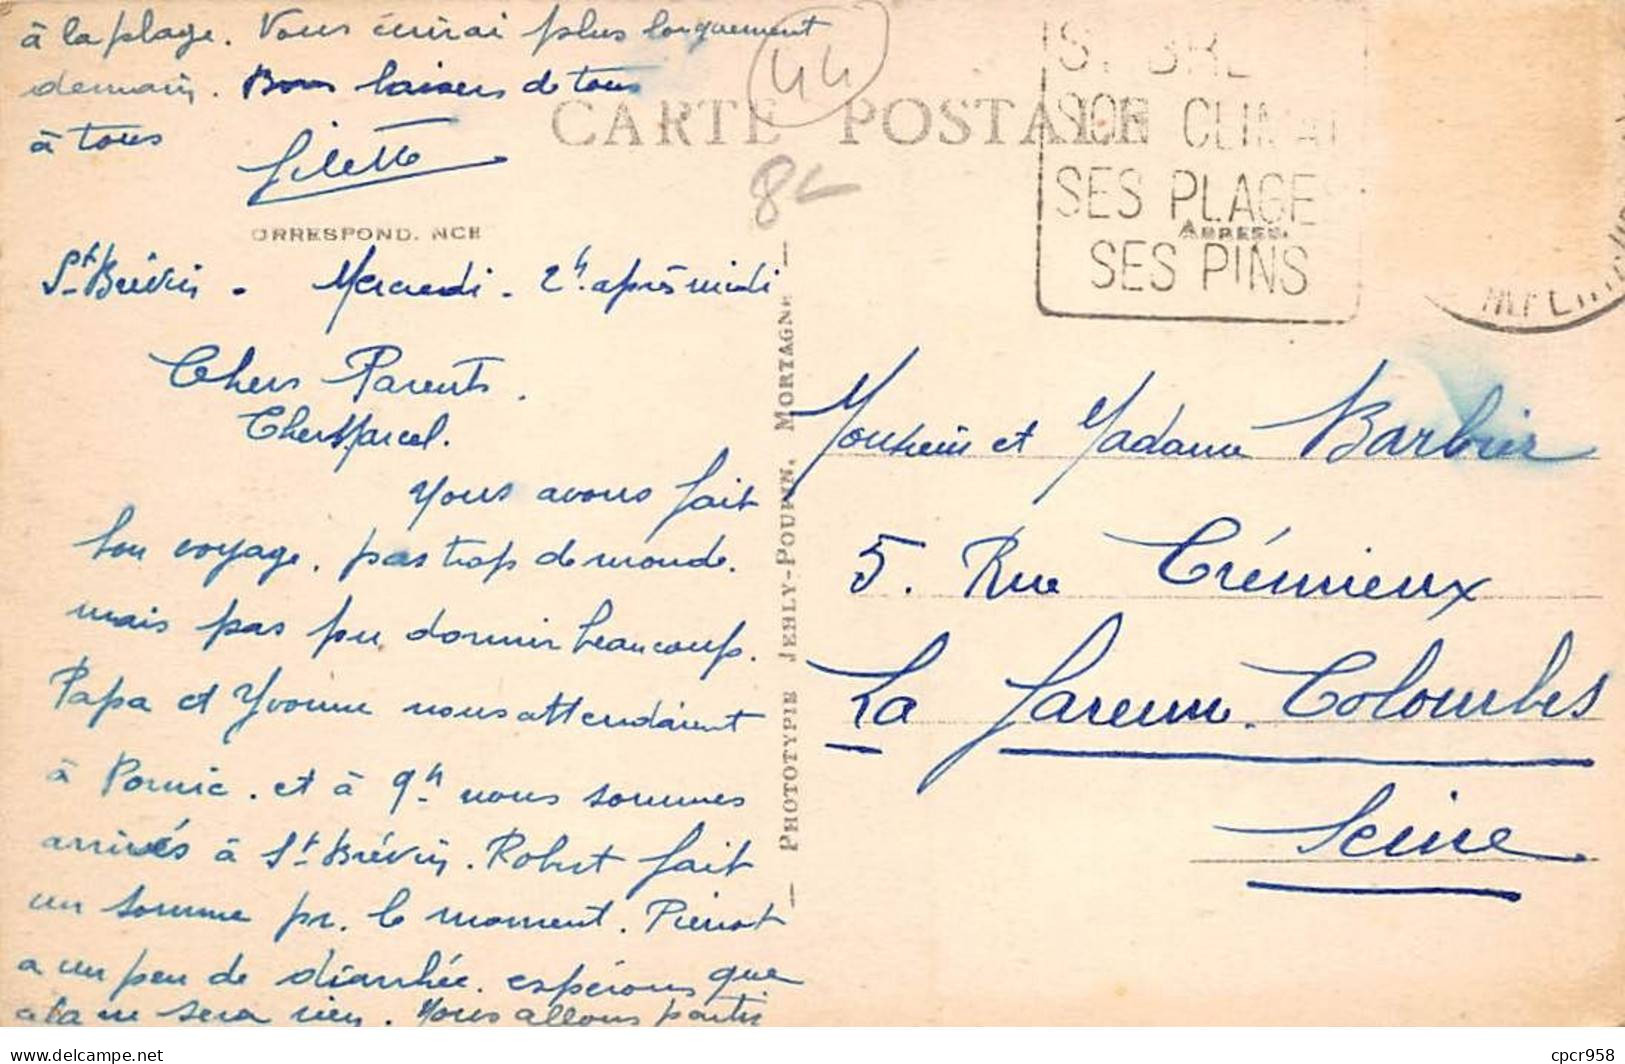 à la plage. Vous écrirai plus longuement
demain. Bons baisers de tous
à tous
Gilette
44
CARTE POSTALE
8
ST BRE
SON CLIMAT
SES PLAGES
SES PINS
ADRESSE
CORRESPONDANCE
St Brévin. Mercredi. 2h. après midi
Chers Parents.
Cher Marcel.
Nous avons fait
bon voyage, pas trop de monde.
mais pas pu dormir beaucoup.
Papa et Yvonne nous attendaient
à Pornic. et à 9h nous sommes
arrivés à St Brévin. Robert fait
un somme pr. le moment. Pierrot
a un peu de diarrhée. espérons que
cela ne sera rien. Nous allons partir
PHOTOTYPIE JEHLY-POUPIN, MORTAGNE
Monsieur et Madame Barbier
5. Rue Crémieux
La Garenne. Colombes
Seine
cpcr958